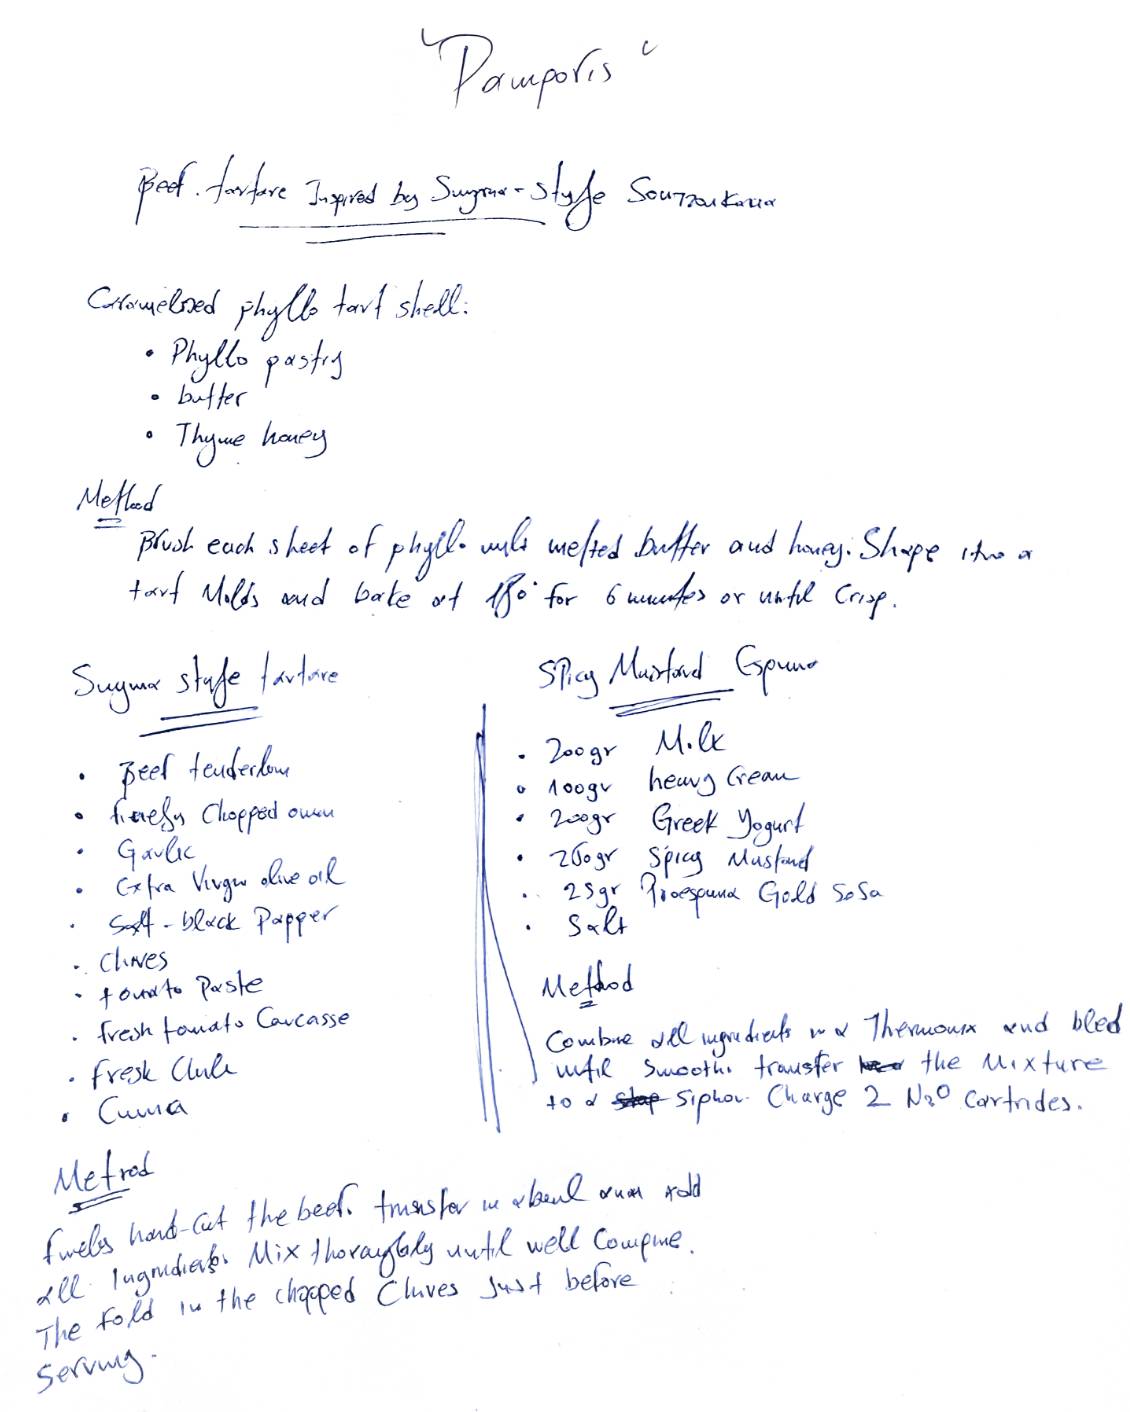 "Pamporis"
Beef tartare Inspired by Smyrna-style Soutzoukakia
Caramelized phyllo tart shell:
• Phyllo pastry
• butter
• Thyme honey
Method
Brush each sheet of phyllo with melted butter and honey. Shape into a
tart Molds and bake at 180° for 6 minutes or until Crisp.
Smyrna style tartare
• Beef tenderloin
• finely Chopped onion
• Garlic
• Extra Virgin olive oil
• Salt - black Papper
• Chives
• tomato Paste
• fresh tomato Carcasse
• fresh Chili
• Cumin
Method
finely hand-cut the beef. transfer in a bowl and add
all Ingredients. Mix thoroughly until well Compine.
The fold in the chopped Chives Just before
Serving.
Spicy Mustard Espuma
• 200gr Milk
• 100gr heavy Cream
• 200gr Greek Yogurt
• 260gr Spicy Mustard
• 25gr Proespuma Gold SoSa
• Salt
Method
Combine all ingredients in a Thermomix and bled
until Smooth. transfer the Mixture
to a Siphon. Charge 2 N₂O Cartrides.